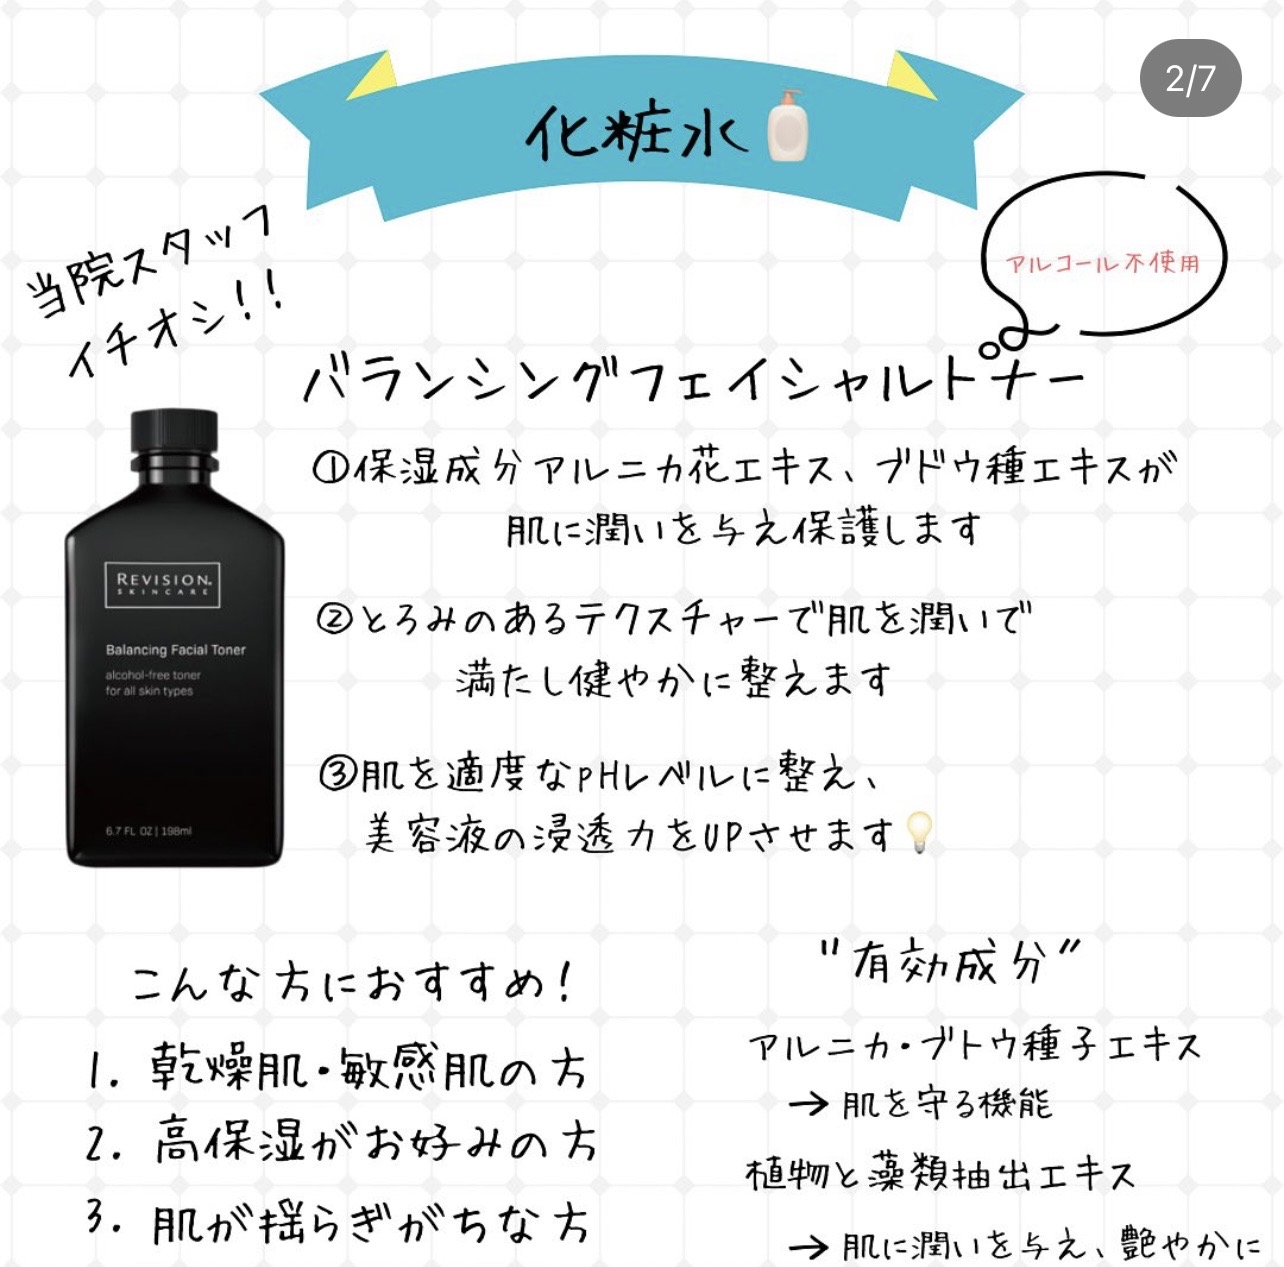 2/7
化粧水
当院スタッフ
イチオシ!!
アルコール不使用
バランシングフェイシャルトナー
①保湿成分アルニカ花エキス、ブドウ種エキスが
肌に潤いを与え保護します
②とろみのあるテクスチャーで肌を潤いで
満たし健やかに整えます
③肌を適度なpHレベルに整え、
美容液の浸透力をUPさせます
REVISION
SKINCARE
Balancing Facial Toner
alcohol-free toner
for all skin types
6.7 FL OZ | 198ml
こんな方におすすめ!
1. 乾燥肌・敏感肌の方
2. 高保湿がお好みの方
3. 肌が揺らぎがちな方
"有効成分"
アルニカ・ブトウ種子エキス
→肌を守る機能
植物と藻類抽出エキス
→肌に潤いを与え、艶やかに